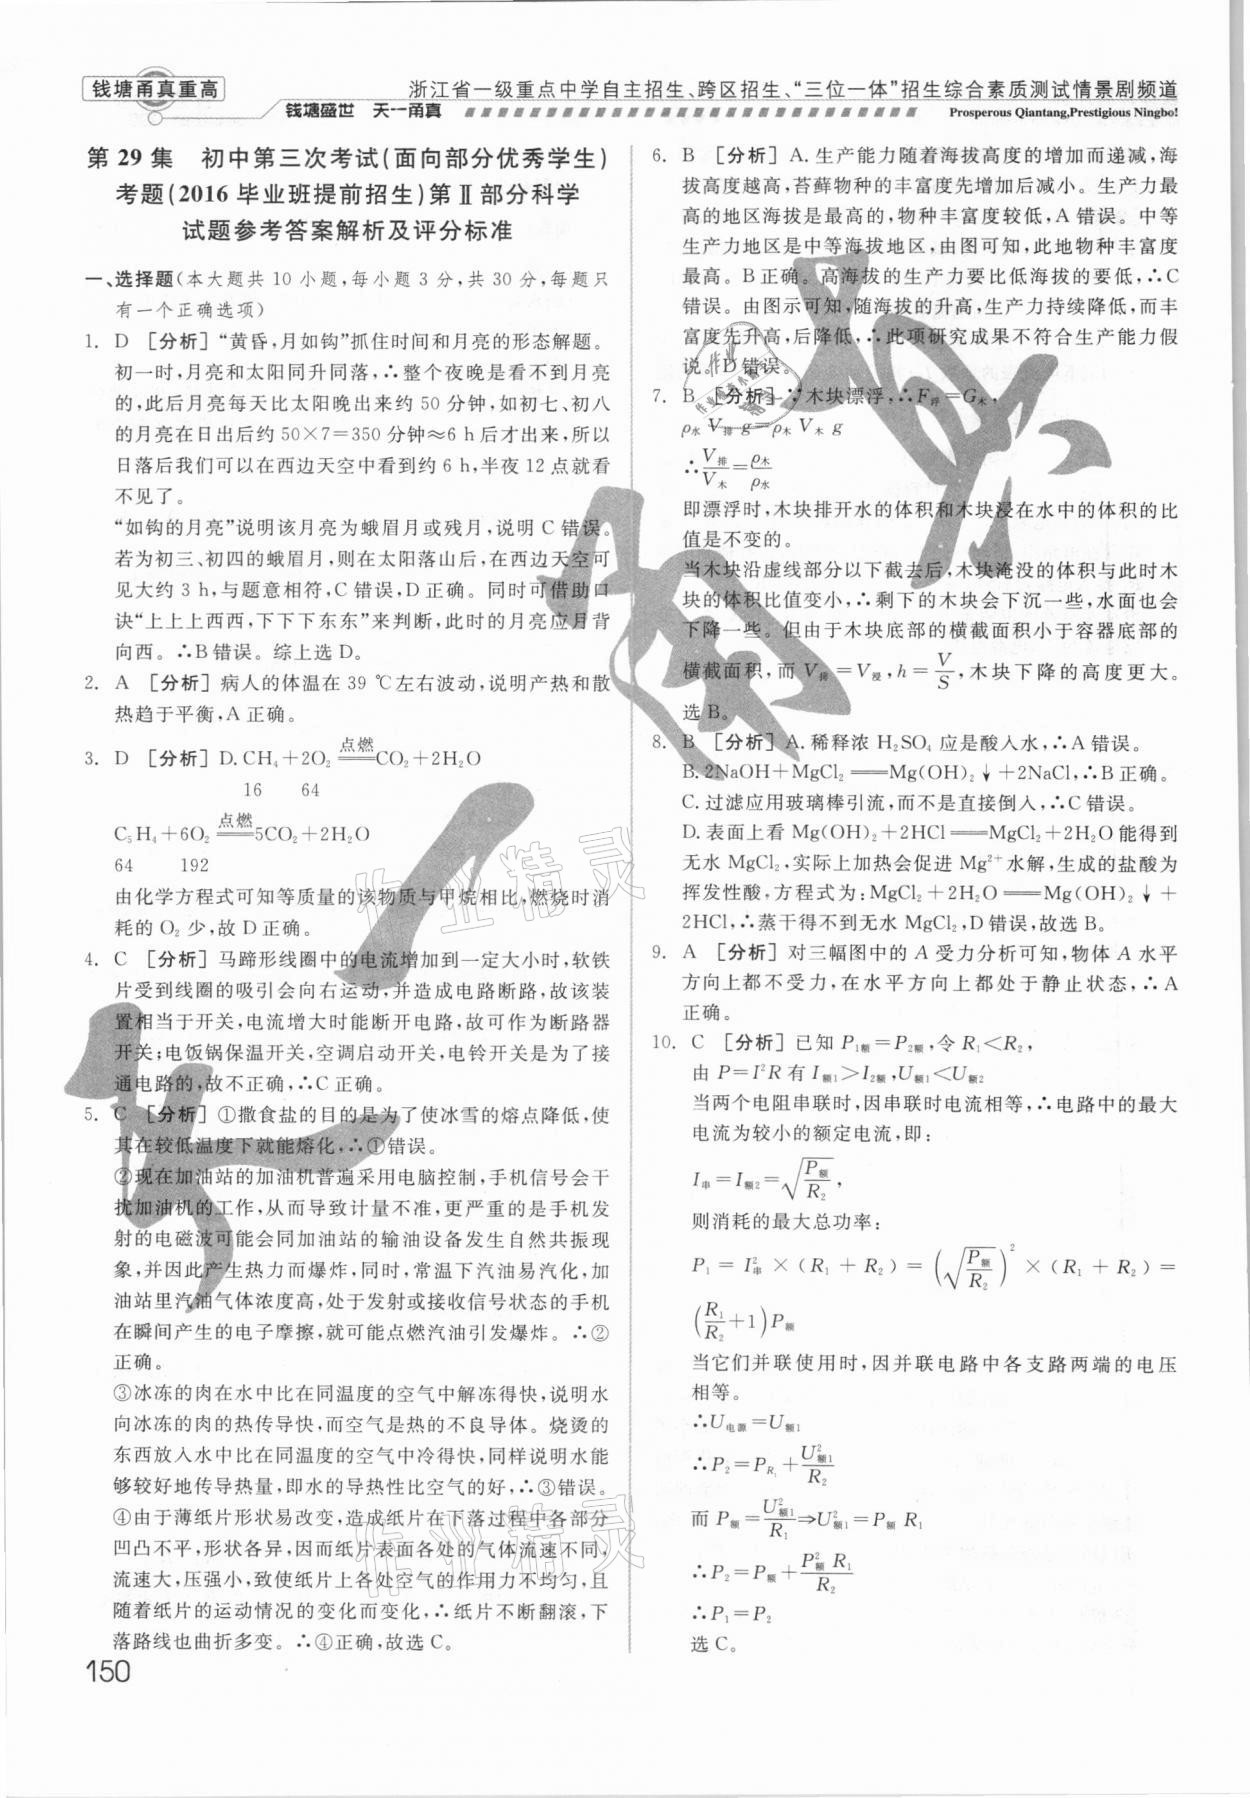 钱塘甬真重高
浙江省一级重点中学自主招生、跨区招生、“三位一体”招生综合素质测试情景剧频道
钱塘盛世 天一甬真
Prosperous Qiantang,Prestigious Ningbo!
第 29 集 初中第三次考试(面向部分优秀学生)
考题(2016 毕业班提前招生)第Ⅱ部分科学
试题参考答案解析及评分标准
一、选择题(本大题共 10 小题,每小题 3 分,共 30 分,每题只
有一个正确选项)
1. D [分析]“黄昏,月如钩”抓住时间和月亮的形态解题。
初一时,月亮和太阳同升同落,∴整个夜晚是看不到月亮
的,此后月亮每天比太阳晚出来约 50 分钟,如初七、初八
的月亮在日出后约 50×7=350 分钟≈6 h 后才出来,所以
日落后我们可以在西边天空中看到约 6 h,半夜 12 点就看
不见了。
“如钩的月亮”说明该月亮为蛾眉月或残月,说明 C 错误。
若为初三、初四的蛾眉月,则在太阳落山后,在西边天空可
见大约 3 h,与题意相符,C 错误,D 正确。同时可借助口
诀“上上上西西,下下下东东”来判断,此时的月亮应月背
向西。∴B 错误。综上选 D。
2. A [分析] 病人的体温在 39 ℃左右波动,说明产热和散
热趋于平衡,A 正确。
3. D [分析] D. CH₄+2O₂ 点燃══ CO₂+2H₂O
16 64
C₅H₄+6O₂ 点燃══ 5CO₂+2H₂O
64 192
由化学方程式可知等质量的该物质与甲烷相比,燃烧时消
耗的 O₂ 少,故 D 正确。
4. C [分析] 马蹄形线圈中的电流增加到一定大小时,软铁
片受到线圈的吸引会向右运动,并造成电路断路,故该装
置相当于开关,电流增大时能断开电路,故可作为断路器
开关;电饭锅保温开关,空调启动开关,电铃开关是为了接
通电路的,故不正确,∴C 正确。
5. C [分析] ①撒食盐的目的是为了使冰雪的熔点降低,使
其在较低温度下就能熔化,∴①错误。
②现在加油站的加油机普遍采用电脑控制,手机信号会干
扰加油机的工作,从而导致计量不准,更严重的是手机发
射的电磁波可能会同加油站的输油设备发生自然共振现
象,并因此产生热力而爆炸,同时,常温下汽油易汽化,加
油站里汽油气体浓度高,处于发射或接收信号状态的手机
在瞬间产生的电子摩擦,就可能点燃汽油引发爆炸。∴②
正确。
③冰冻的肉在水中比在同温度的空气中解冻得快,说明水
向冰冻的肉的热传导快,而空气是热的不良导体。烧烫的
东西放入水中比在同温度的空气中冷得快,同样说明水能
够较好地传导热量,即水的导热性比空气的好,∴③错误。
④由于薄纸片形状易改变,造成纸片在下落过程中各部分
凹凸不平,形状各异,因而纸片表面各处的气体流速不同,
流速大,压强小,致使纸片上各处空气的作用力不均匀,且
随着纸片的运动情况的变化而变化,∴纸片不断翻滚,下
落路线也曲折多变。∴④正确,故选 C。
150
6. B [分析] A. 生产能力随着海拔高度的增加而递减,海
拔高度越高,苔藓物种的丰富度先增加后减小。生产力最
高的地区海拔是最高的,物种丰富度较低,A 错误。中等
生产力地区是中等海拔地区,由图可知,此地物种丰富度
最高。B 正确。高海拔的生产力要比低海拔的要低,∴C
错误。由图示可知,随海拔的升高,生产力持续降低,而丰
富度先升高,后降低,∴此项研究成果不符合生产能力假
说。D 错误。
7. B [分析] ∵木块漂浮,∴F浮=G木,
ρ水 V排 g=ρ木 V木 g
∴V排/V木=ρ木/ρ水
即漂浮时,木块排开水的体积和木块浸在水中的体积的比
值是不变的。
当木块沿虚线部分以下截去后,木块淹没的体积与此时木
块的体积比值变小,∴剩下的木块会下沉一些,水面也会
下降一些。但由于木块底部的横截面积小于容器底部的
横截面积,而 V排=V浸,h=V/S,木块下降的高度更大。
选 B。
8. B [分析] A. 稀释浓 H₂SO₄ 应是酸入水,∴A 错误。
B. 2NaOH+MgCl₂══Mg(OH)₂↓+2NaCl,∴B 正确。
C. 过滤应用玻璃棒引流,而不是直接倒入,∴C 错误。
D. 表面上看 Mg(OH)₂+2HCl══MgCl₂+2H₂O 能得到
无水 MgCl₂,实际上加热会促进 Mg²⁺水解,生成的盐酸为
挥发性酸,方程式为:MgCl₂+2H₂O══Mg(OH)₂↓+
2HCl,∴蒸干得不到无水 MgCl₂,D 错误,故选 B。
9. A [分析] 对三幅图中的 A 受力分析可知,物体 A 水平
方向上都不受力,在水平方向上都处于静止状态,∴A
正确。
10. C [分析] 已知 P1额=P2额,令 R₁<R₂,
由 P=I²R 有 I额1>I2额,U额1<U额2
当两个电阻串联时,因串联时电流相等,∴电路中的最大
电流为较小的额定电流,即:
I串=I额2=√(P额/R₂),
则消耗的最大总功率:
P₁=I串²×(R₁+R₂)=(√(P额/R₂))²×(R₁+R₂)=
(R₁/R₂+1)P额
当它们并联使用时,因并联电路中各支路两端的电压
相等。
∴U电源=U额1
∴P₂=P_R₁+U额1²/R₂
而 P额=U额1²/R₁⇒U额1²=P额 R₁
∴P₂=P额+P额² R₁/R₂
∴P₁=P₂
选 C。
天一甬真
作业精灵
作业精灵